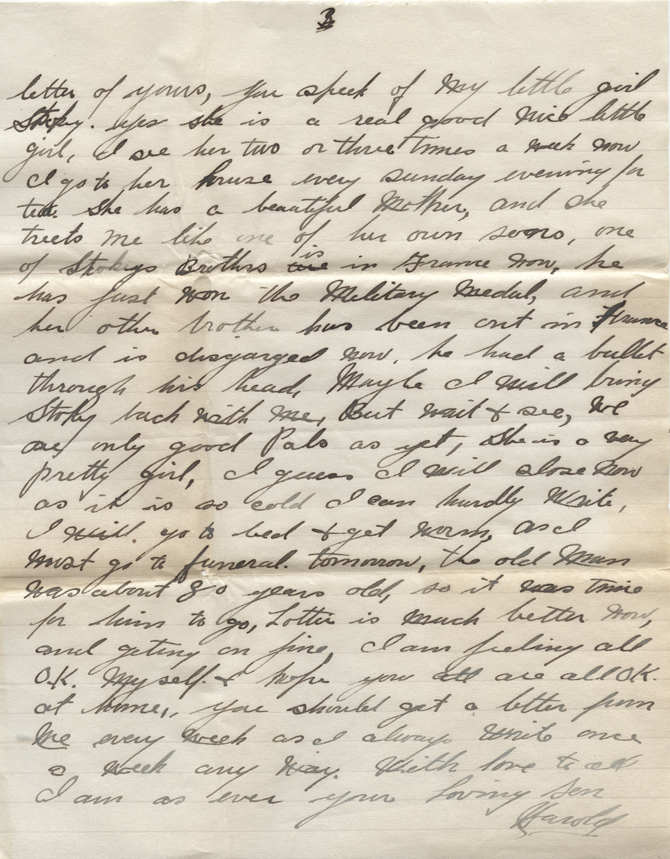 3
letter of yours, you speek of My little girl
Stoky. yes she is a real good Nice little
girl, I see her two or three times a week now
I go to her house every sunday evening for
tea. She has a beautiful Mother, and she
treets me like one of her own sons, one
of Stokys Brothers is in France Now, he
has just won the Military Medal, and
her other brother has been out in France
and is disgarged now. he had a bullet
through his head, Maybe I will bring
Stoky back with me, But wait & see, We
are only good Pals as yet, She is a very
pretty girl, I guess I will close now
as it is so cold I can hardly Write,
I will. go to bed & get worm, as I
must go to funeral. tomorrow, the old Man
was about 80 years old, so it was time
for him to go, Lottie is much better now,
and geting on fine, I am feeling all
O.K. My self. & hope you all are all O.K.
at home,, you should get a letter from
Me every week as I always Write once
a week any Way. With love to all
I am as ever your loving son
Harold